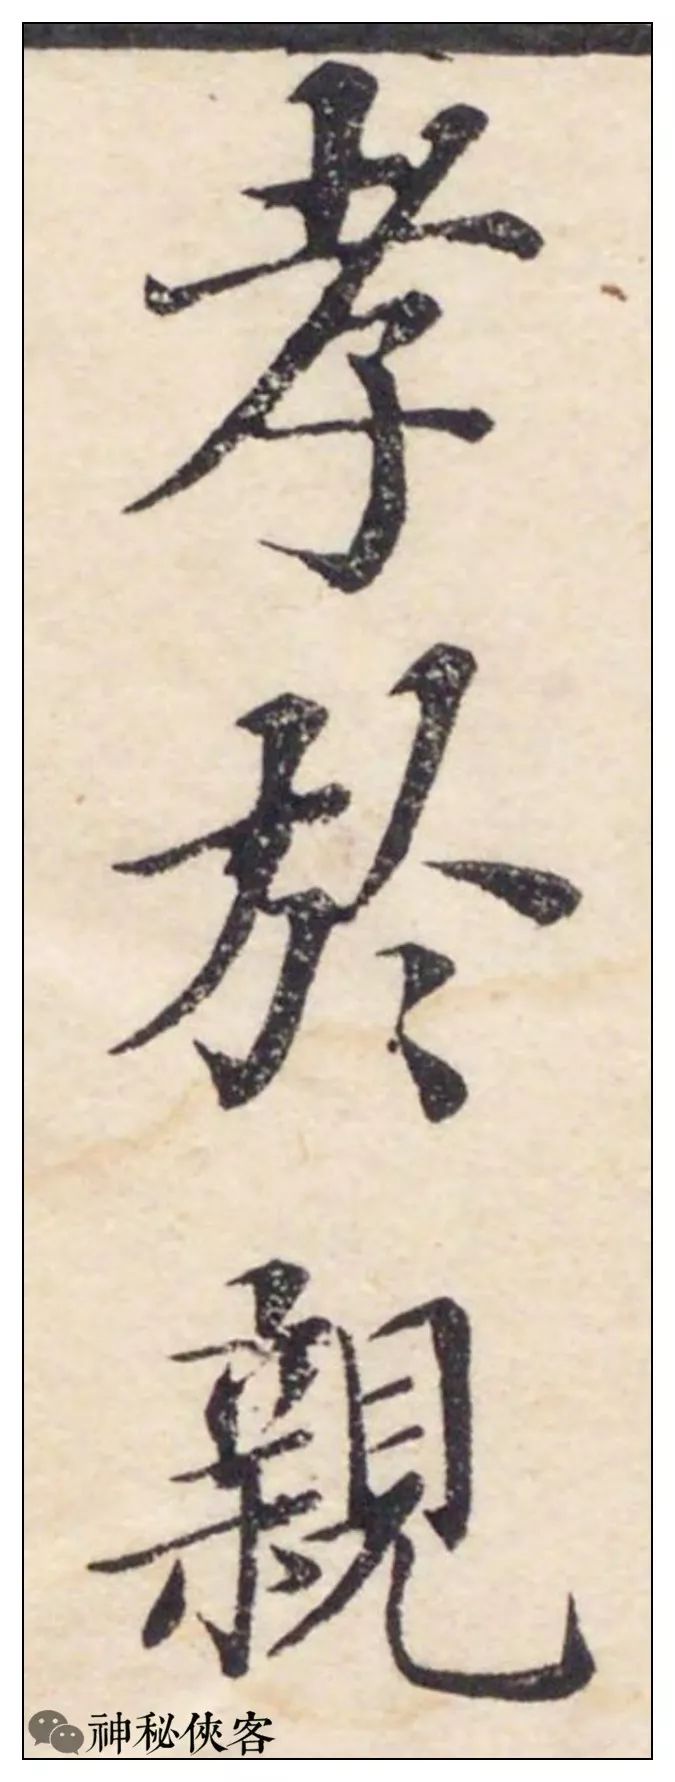 孝於親
神秘俠客